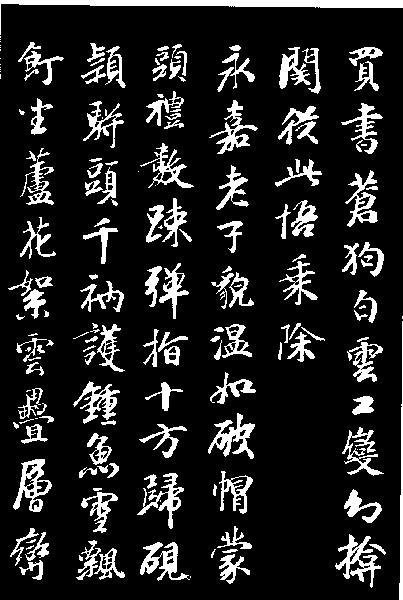 買書蒼狗白雲工變幻揜
関從此悟乗除
永嘉老子貌温如破帽蒙
頭禮數踈弹指十方歸硯
頴駢頭千衲護鍾魚雪飄
飣坐蘆花絮雲疊層巒